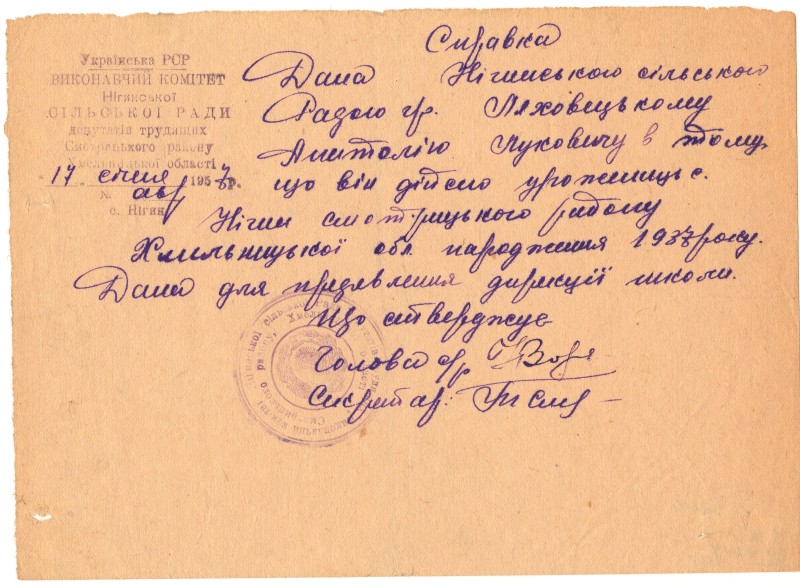 Українська РСР
ВИКОНАВЧИЙ КОМІТЕТ
Нігинської
СІЛЬСЬКОЇ РАДИ
депутатів трудящих
Смотрицького району
Хмельницької області
17 січня 1957р.
№
с. Нігин
Справка
Дана Нігинського сільського
Радою гр. Ляховецькому
Анатолію Луковичу в тому,
що він дійсно урожениць с.
Нігин смотрицького району
Хмильницької обл. народження 1937 року.
Дана для предявлення дирекції школи.
Що стверджує
Голова с/р
Секретар: